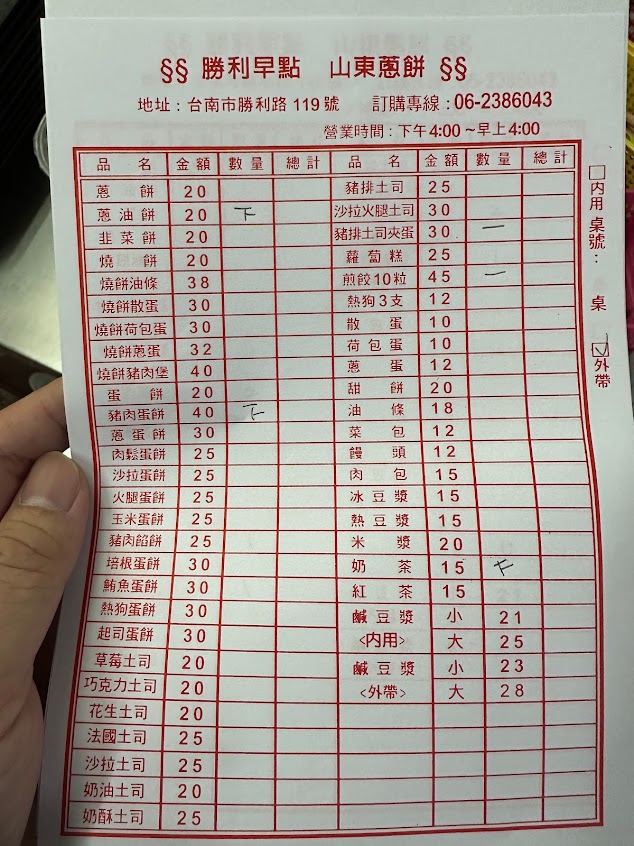 §§ 勝利早點 山東蔥餅 §§
地址：台南市勝利路119號 訂購專線：06-2386043
營業時間：下午4:00～早上4:00
品名 金額 數量 總計 品名 金額 數量 總計
蔥餅 20 豬排土司 25
蔥油餅 20 下 沙拉火腿土司 30
韭菜餅 20 豬排土司夾蛋 30 一
燒餅 20 蘿蔔糕 25
燒餅油條 38 煎餃10粒 45 一
燒餅散蛋 30 熱狗3支 12
燒餅荷包蛋 30 散蛋 10
燒餅蔥蛋 32 荷包蛋 10
燒餅豬肉堡 40 蔥蛋 12
蛋餅 20 甜餅 20
豬肉蛋餅 40 下 油條 18
蔥蛋餅 30 菜包 12
肉鬆蛋餅 25 饅頭 12
沙拉蛋餅 25 肉包 15
火腿蛋餅 25 冰豆漿 15
玉米蛋餅 25 熱豆漿 15
豬肉餡餅 25 米漿 20
培根蛋餅 30 奶茶 15
鮪魚蛋餅 30 紅茶 15
熱狗蛋餅 30 鹹豆漿 小 21
起司蛋餅 30 <內用> 大 25
草莓土司 20 鹹豆漿 小 23
巧克力土司 20 <外帶> 大 28
花生土司 20
法國土司 25
沙拉土司 25
奶油土司 20
奶酥土司 25
□內用 桌號： 桌
☑外帶